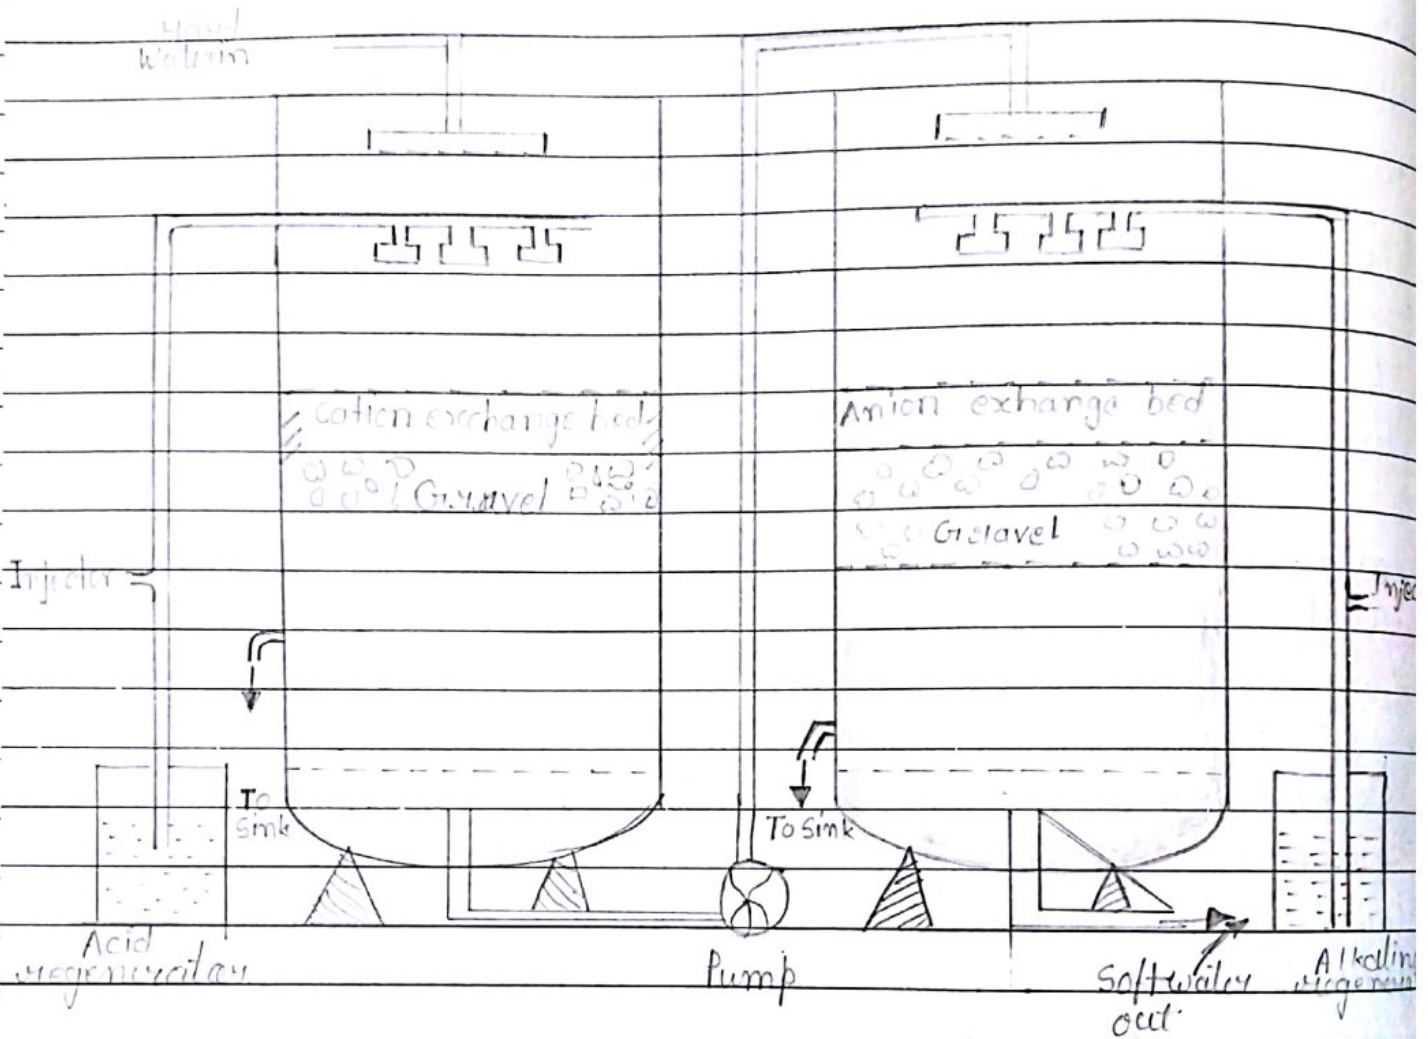 Hard
Water in
Cation exchange bed
Anion exhange bed
Gravel
Gravel
Injector
Injec
To
Sink
To Sink
Acid
regenerator
Pump
Soft water
out.
Alkalin
regener